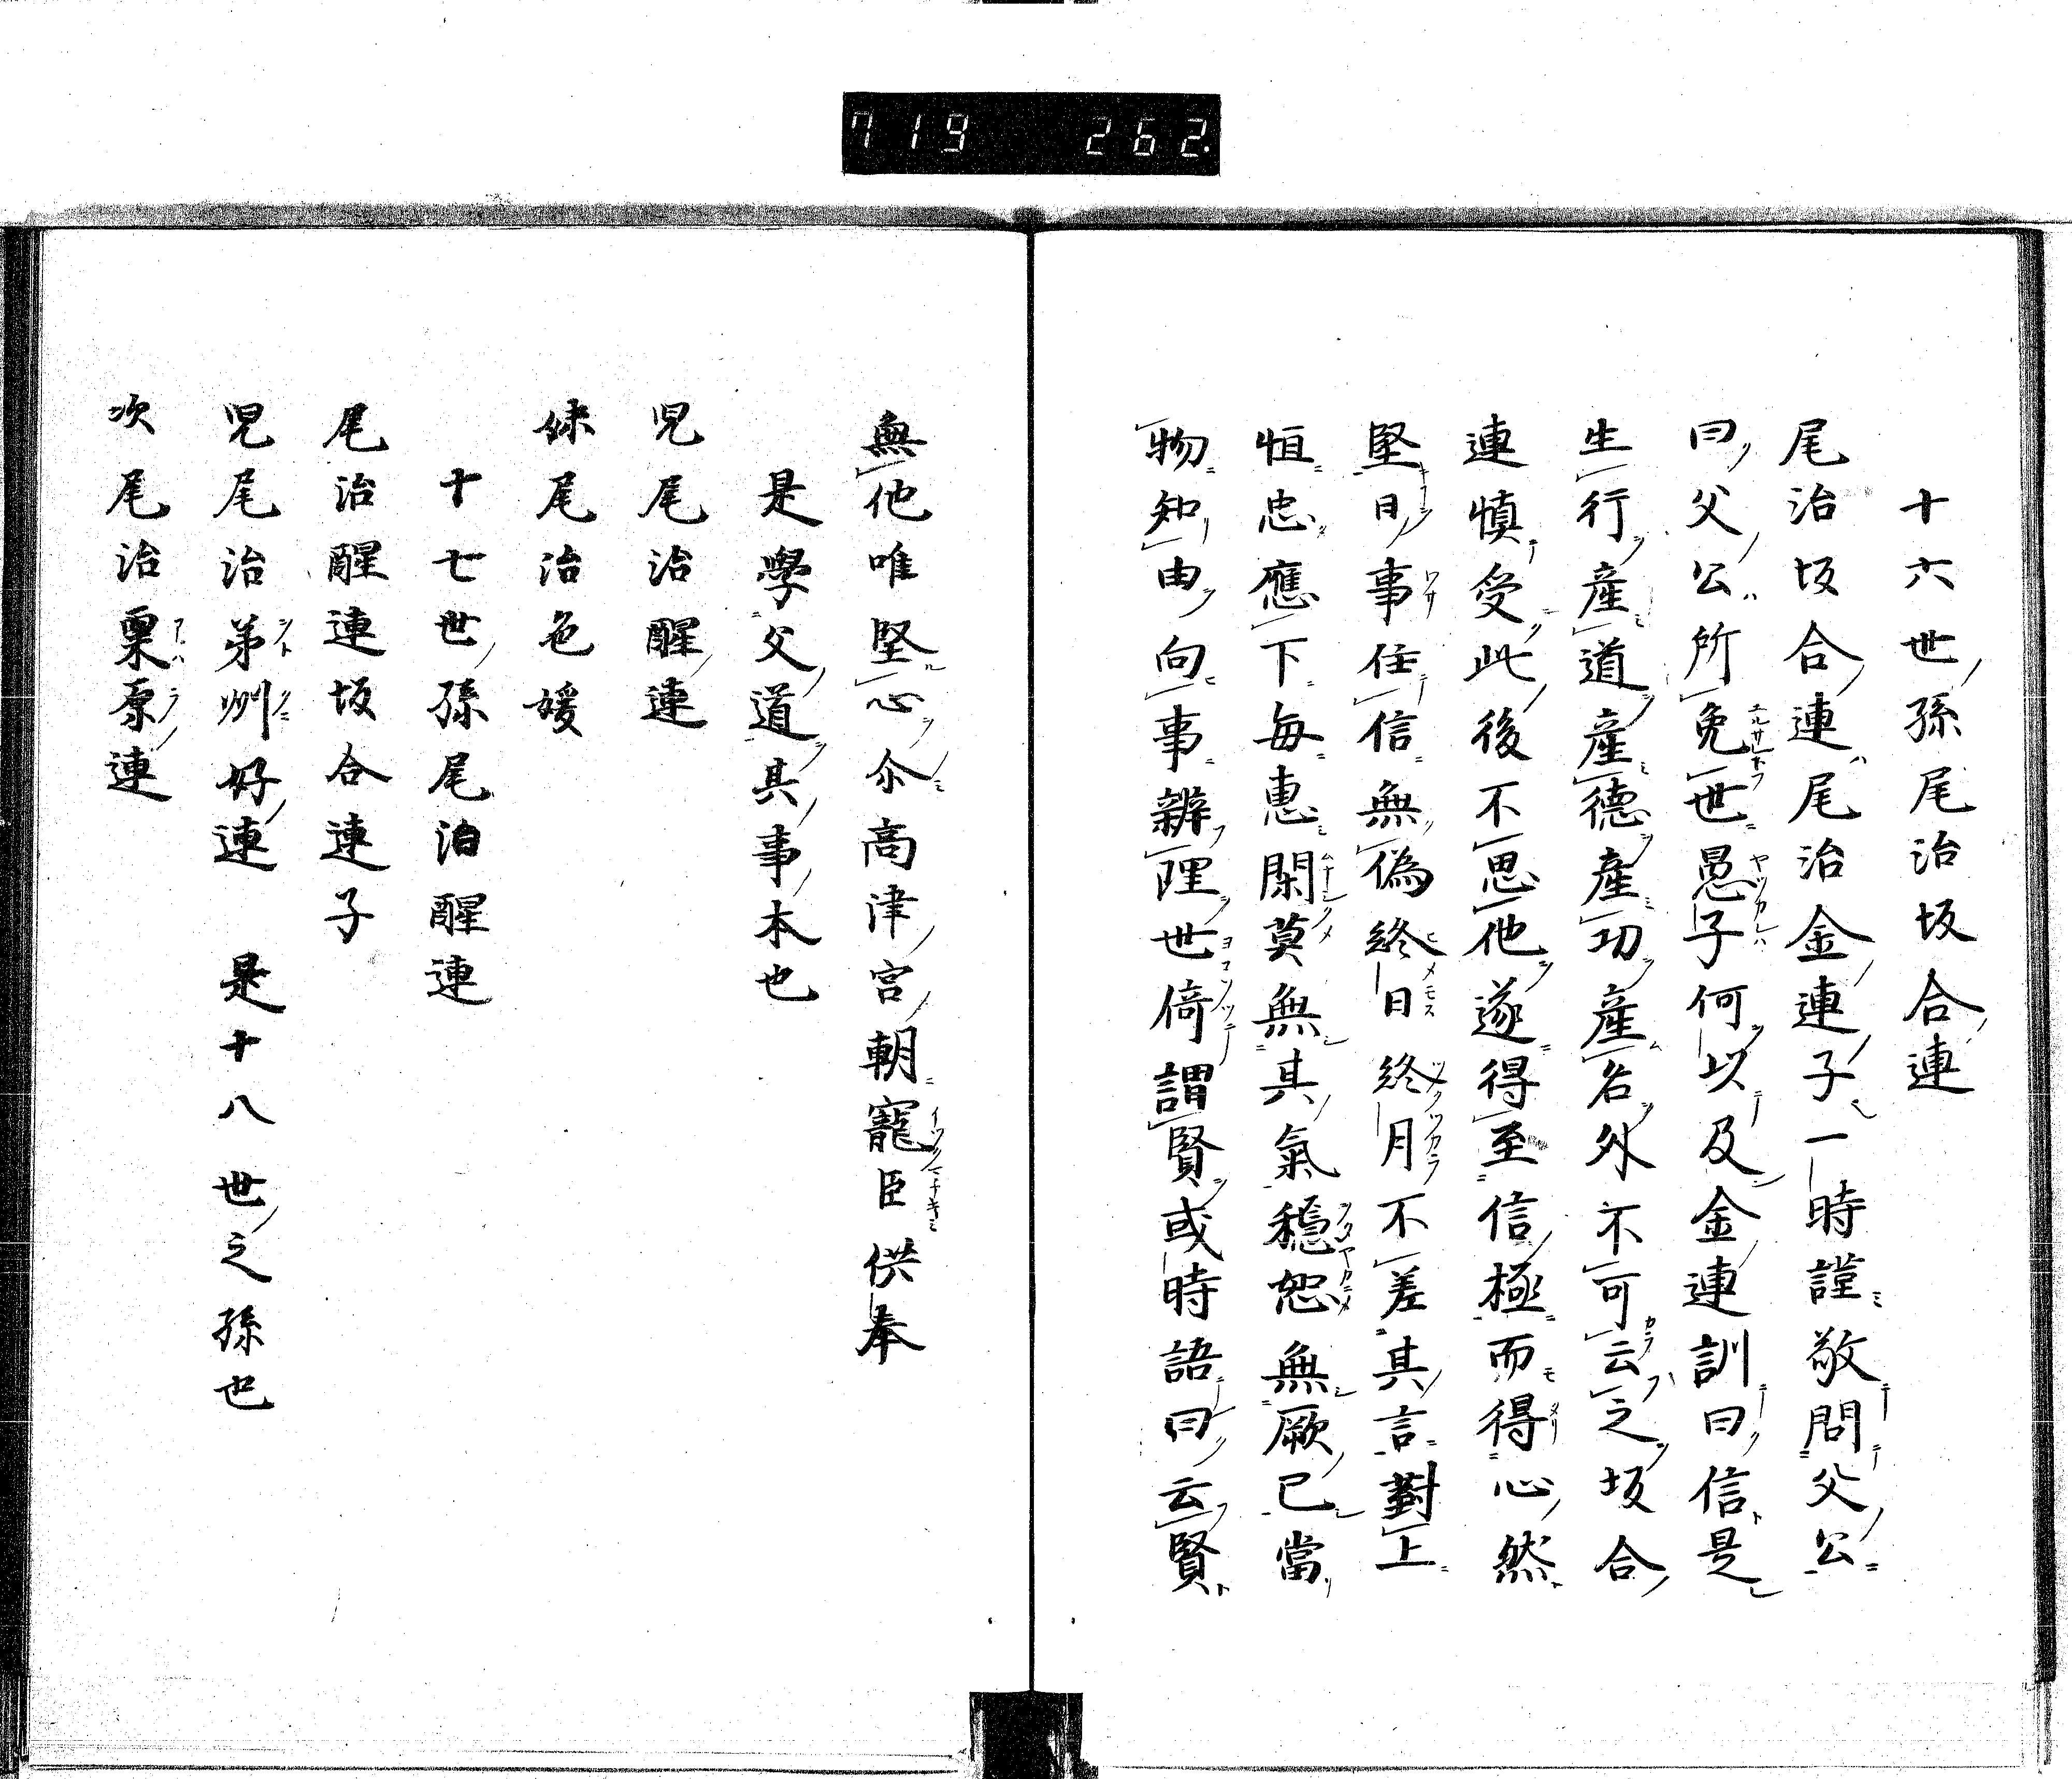 719 262.
十六世孫尾治坂合連
尾治坂合連尾治金連子一時謹敬問父公
曰父公所免世愚子何以及金連訓曰信是
生行産道産德産功産名外不可云之坂合
連慎受此後不思他遂得至信極而得心然
堅日事任信無偽終日終月不差其言對上
恒忠應下毎惠閑莫無其氣穩恕無厥已當
物知由向事辨理世倚謂賢或時語曰云賢
無他唯堅心尒高津宮朝寵臣供奉
是學父道其事本也
児尾治醒連
妹尾治色媛
十七世孫尾治醒連
尾治醒連坂合連子
児尾治弟洲好連 是十八世之孫也
次尾治栗原連